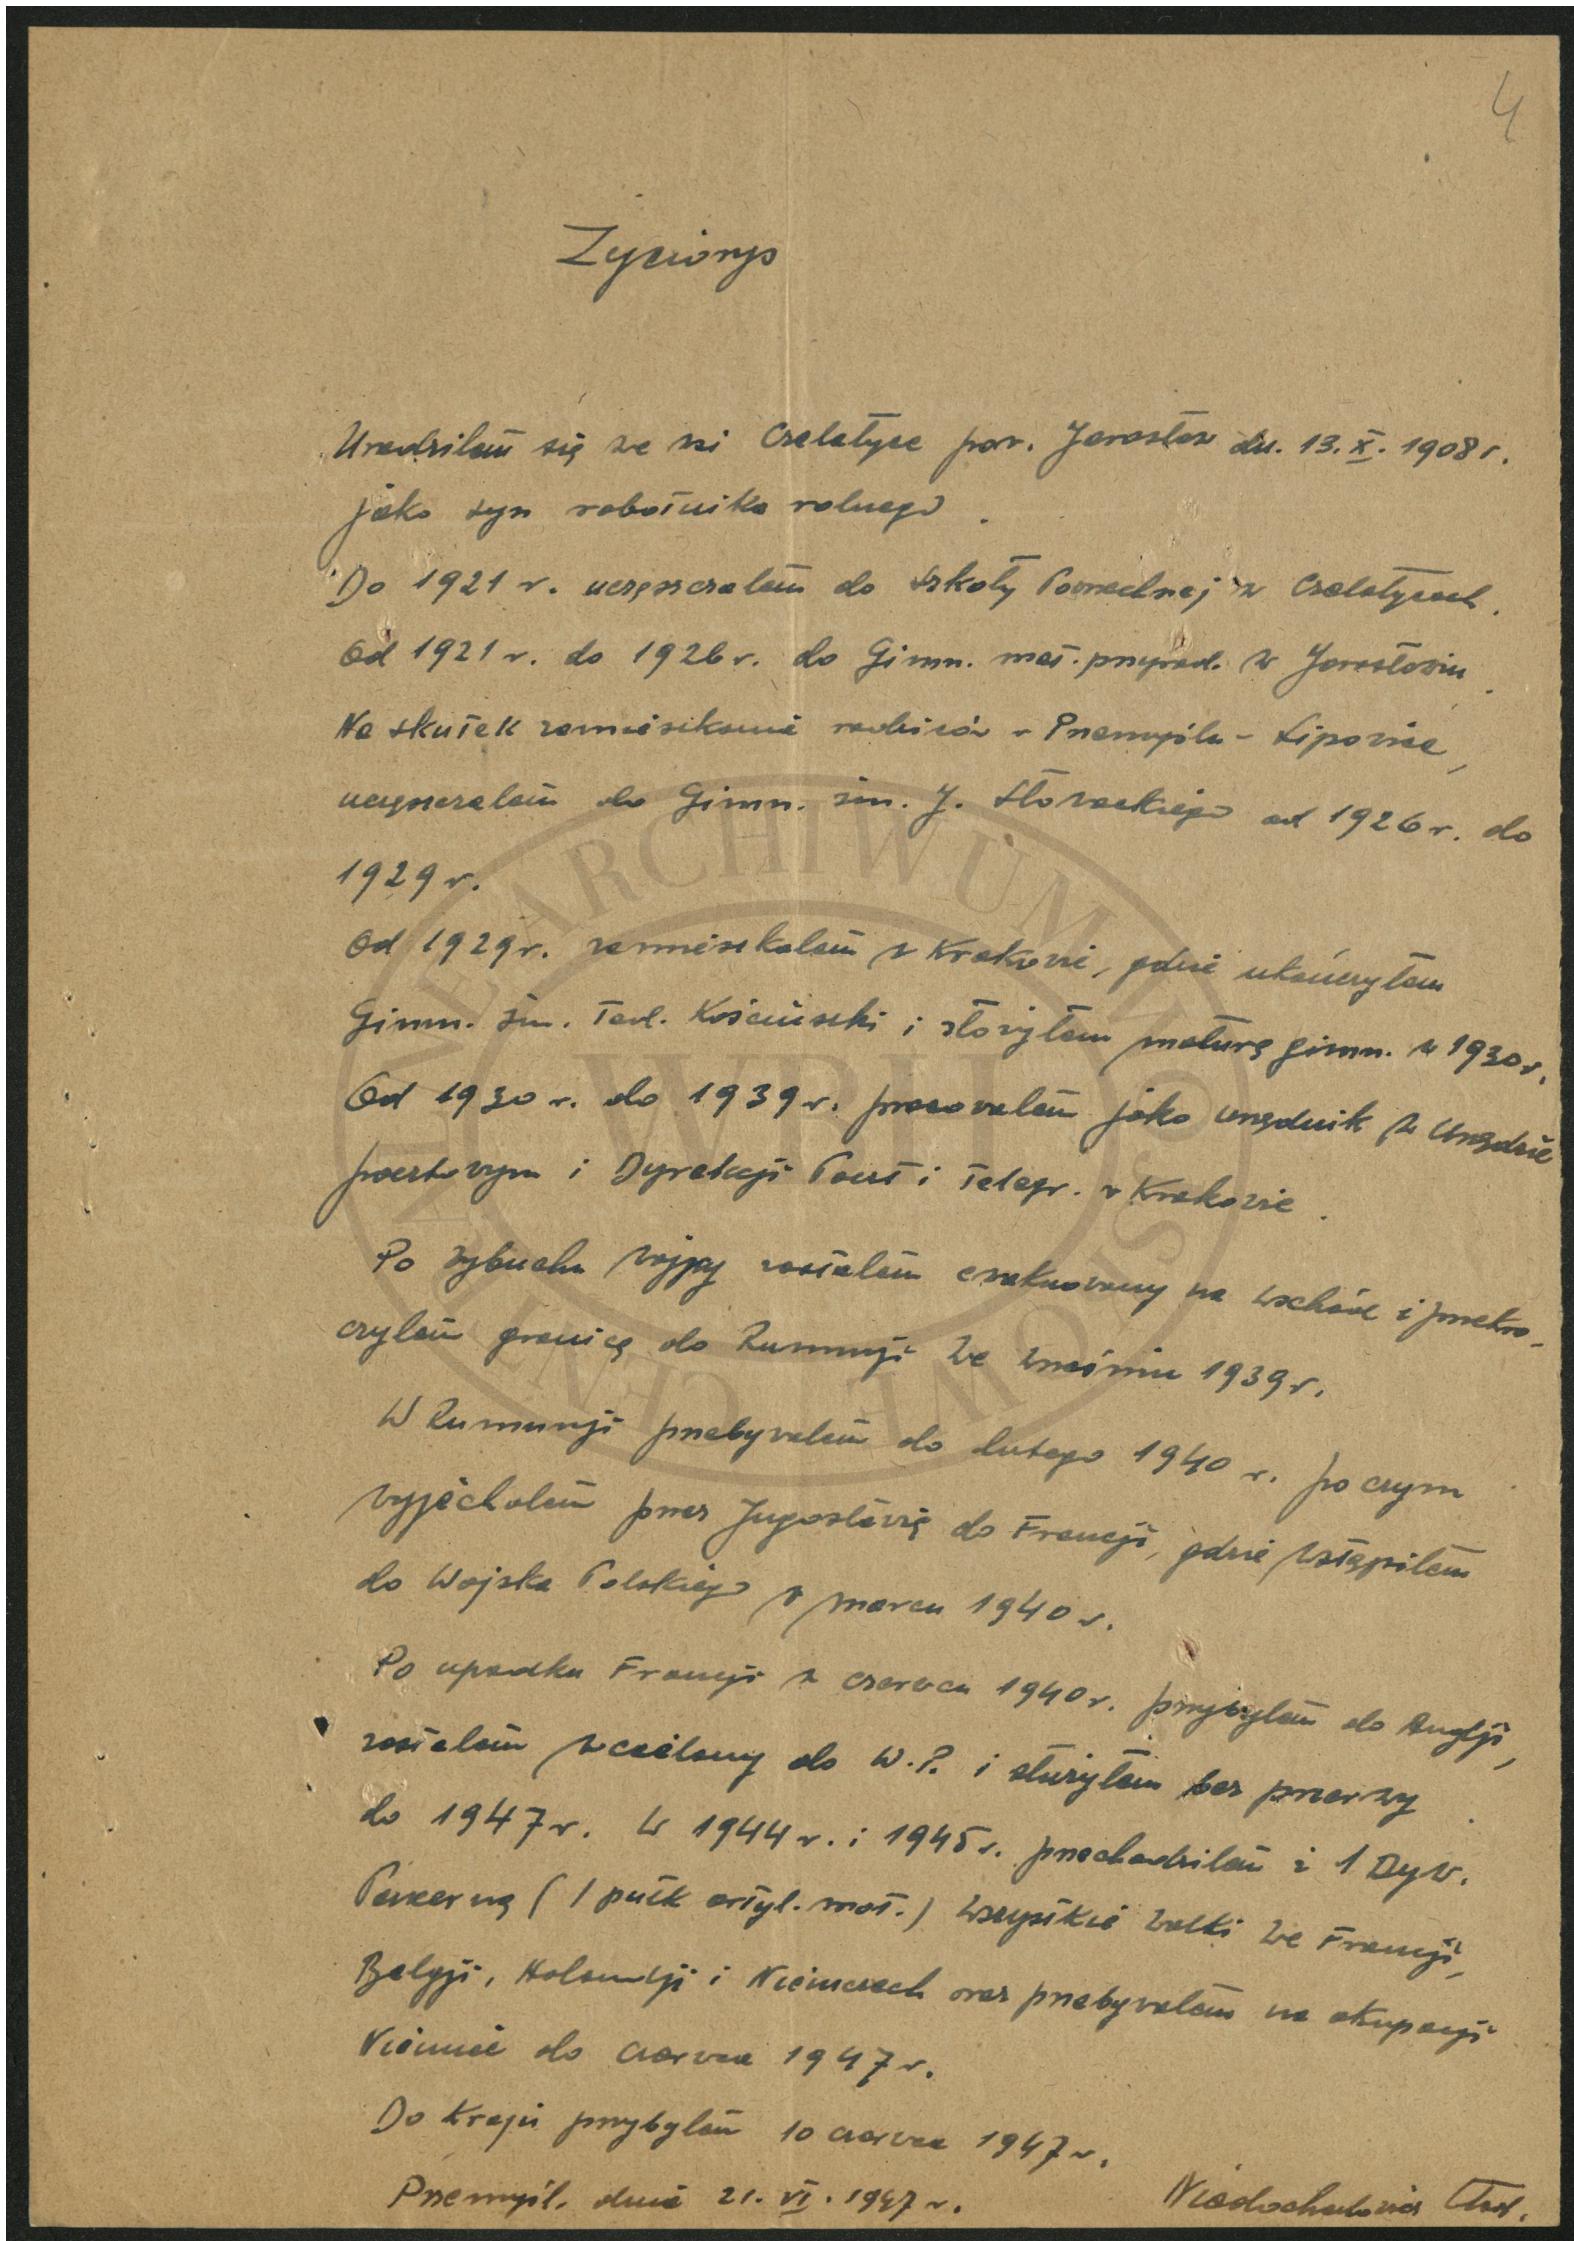 4
Życiorys
Urodziłem się we wsi Czelatyce pow. Jarosław dn. 13.X.1908 r.
jako syn robotnika rolnego.
Do 1921 r. uczęszczałem do Szkoły Powszechnej w Czelatycach.
Od 1921 r. do 1926 r. do Gimn. mat. przyrod. w Jarosławiu.
Na skutek zamieszkania rodziców w Przemyślu - Lipowica,
uczęszczałem do Gimn. im. J. Słowackiego od 1926 r. do
1929 r.
Od 1929 r. zamieszkałem w Krakowie, gdzie ukończyłem
Gimn. im. Tad. Kościuszki i złożyłem maturę gimn. w 1930 r.
Od 1930 r. do 1939 r. pracowałem jako urzędnik w Urzędzie
pocztowym i Dyrekcji Poczt i Telegr. w Krakowie.
Po wybuchu wojny zostałem ewakuowany na wschód i przekro-
czyłem granicę do Rumunji we wrześniu 1939 r.
W Rumunji przebywałem do lutego 1940 r. po czym
wyjechałem przez Jugosławię do Francji, gdzie wstąpiłem
do Wojska Polskiego w marcu 1940 r.
Po upadku Francji w czerwcu 1940 r. przybyłem do Anglji,
zostałem wcielony do W.P. i służyłem bez przerwy
do 1947 r. W 1944 r. i 1945 r. przechodziłem z 1 Dyw.
Pancerną (1 pułk artyl. mot.) wszystkie walki we Francji,
Belgji, Holandji i Niemczech oraz przebywałem na okupacji
Niemiec do czerwca 1947 r.
Do Kraju przybyłem 10 czerwca 1947 r.
Przemyśl. dnia 21. VI. 1947 r.
ARCHIWUM
WBH